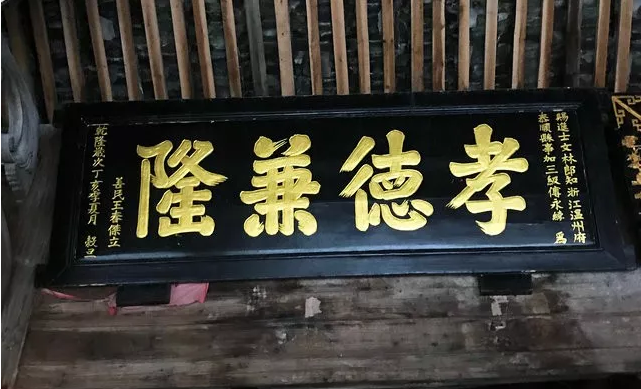 賜進士文林郎知浙江温州府
泰順縣事加三級傅永綍 爲
孝德兼隆
善民王春傑立
乾隆歲次丁亥季夏月 穀旦